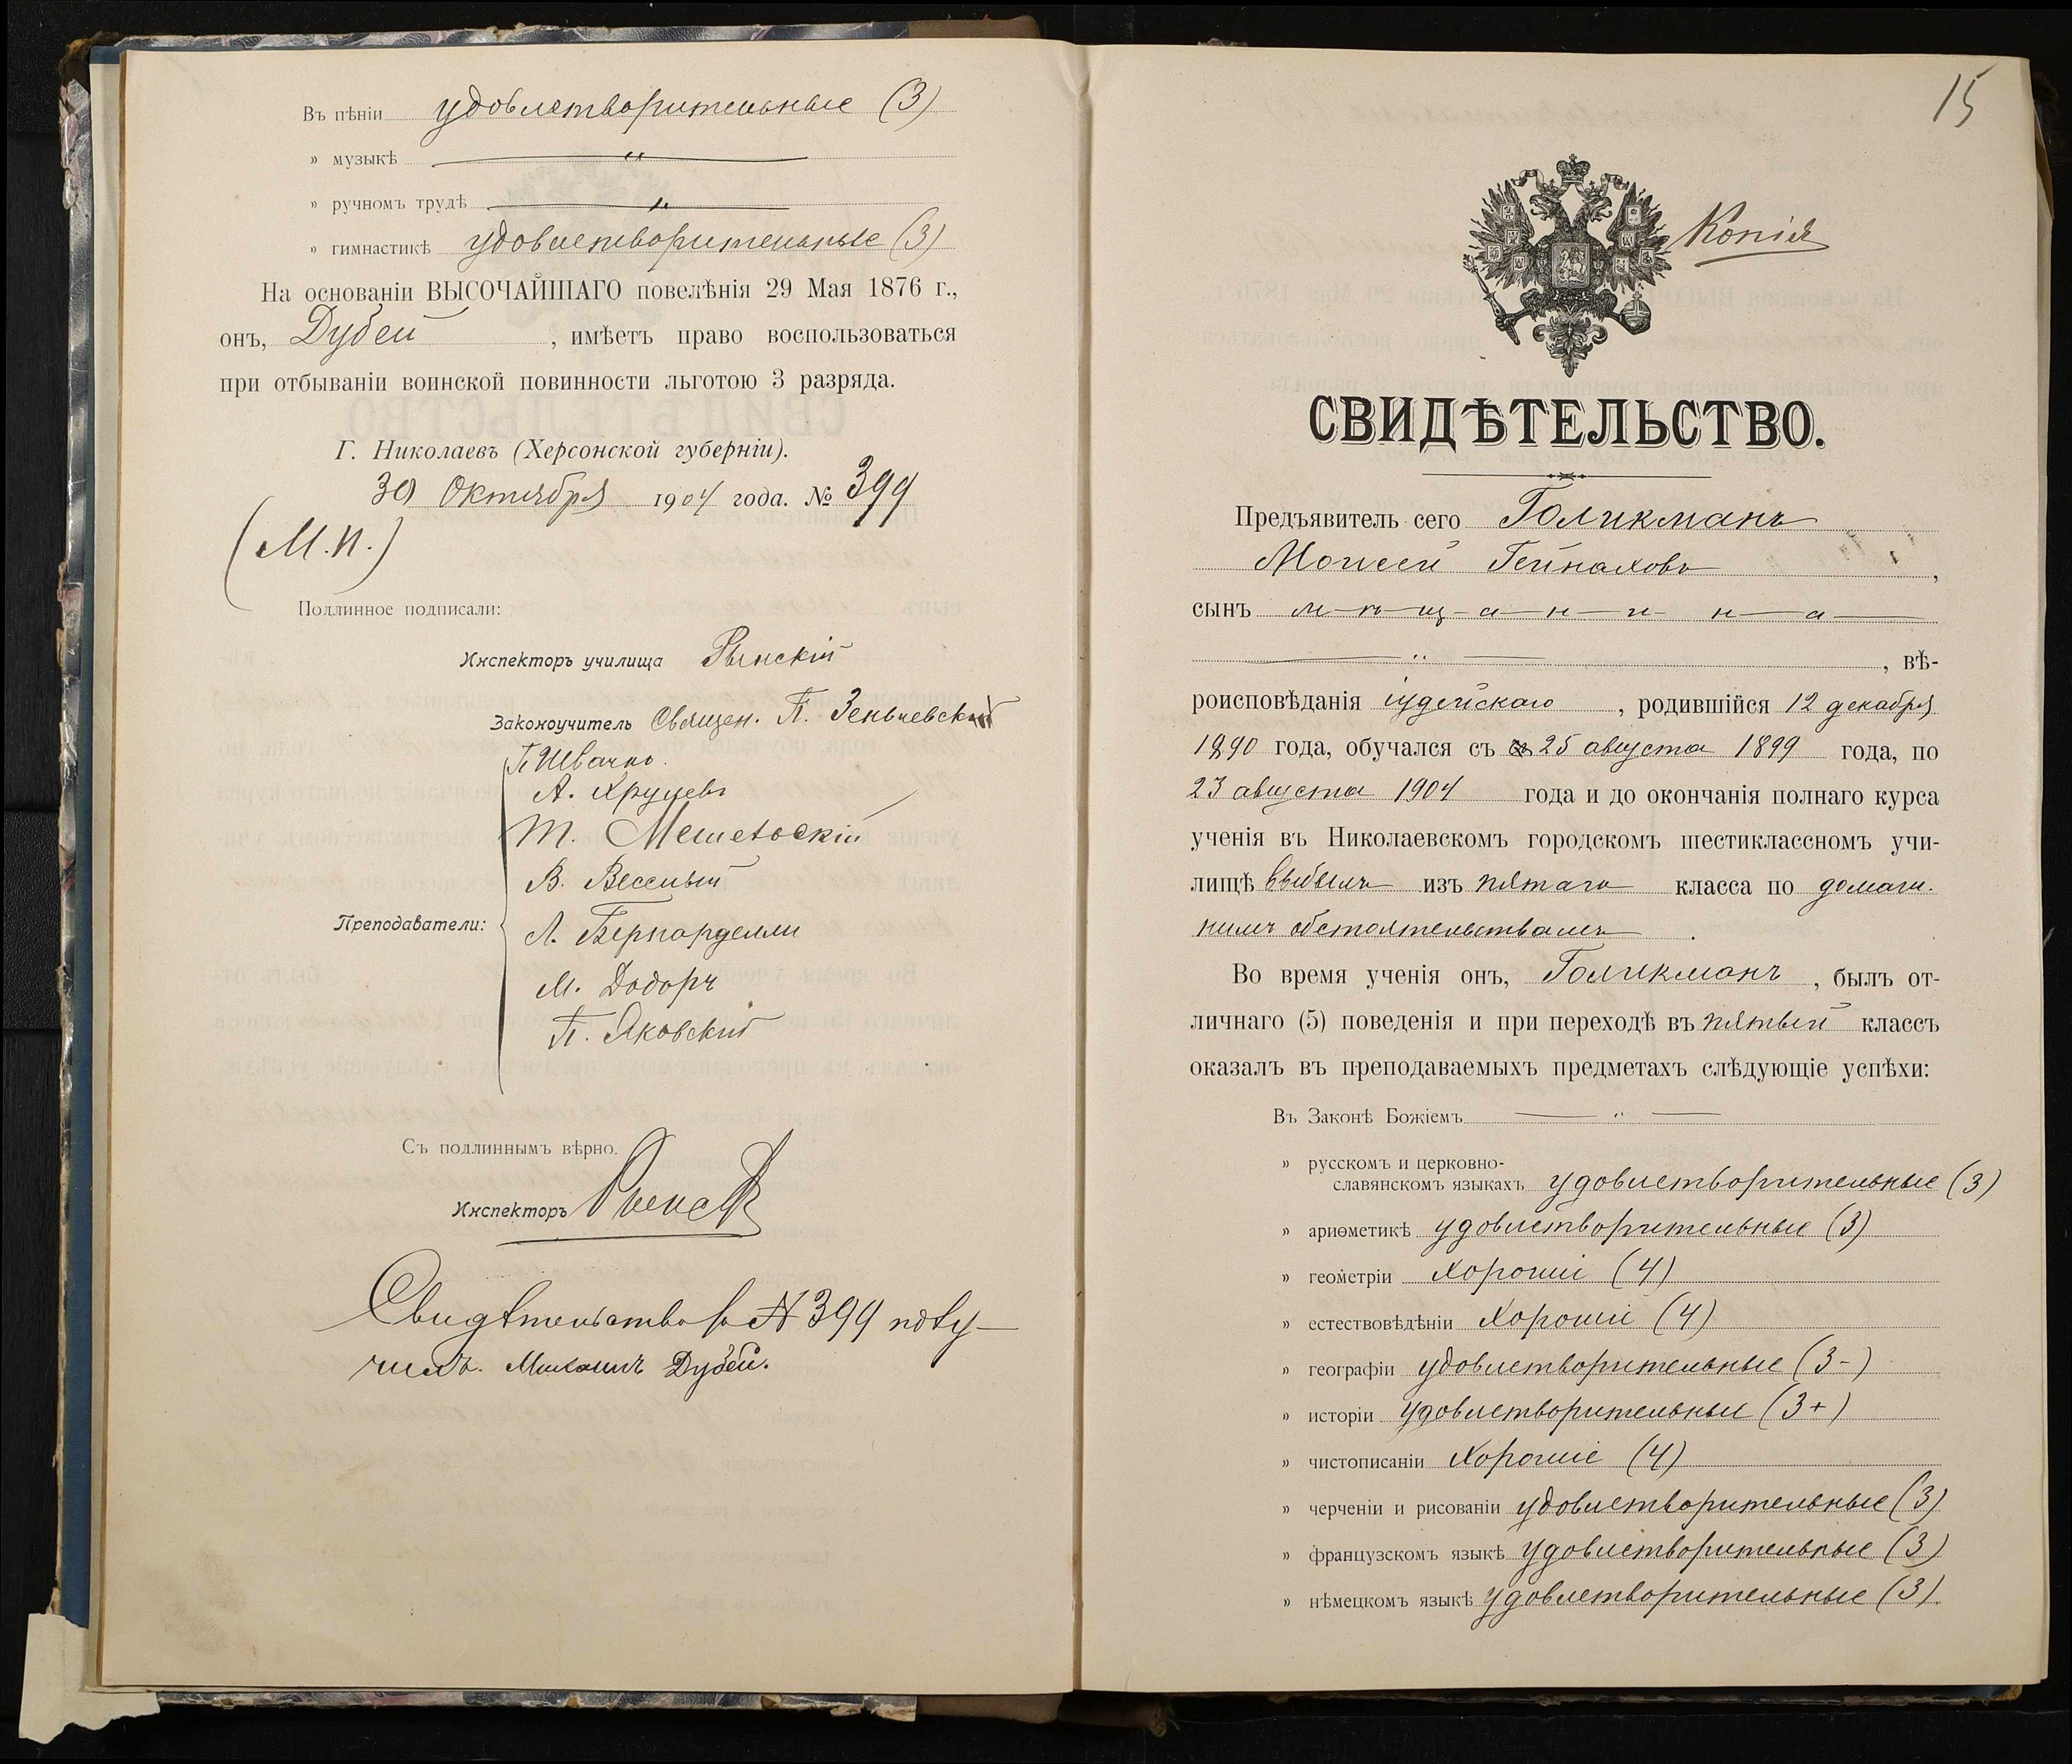 Въ пѣніи удовлетворительные (3)
» музыкѣ — " —
» ручномъ трудѣ — " —
» гимнастикѣ удовлетворительные (3)
На основаніи ВЫСОЧАЙШАГО повелѣнія 29 Мая 1876 г.,
онъ, Дубей , имѣетъ право воспользоваться
при отбываніи воинской повинности льготою 3 разряда.
Г. Николаевъ (Херсонской губерніи).
30 Октября 1904 года. № 399
(М.П.)
Подлинное подписали:
Инспекторъ училища Рынскій
Законоучитель Священ. П.
П. Швачко.
А.
Т.
В. Веселый
Преподаватели: Л. Бернарделли
М. Додоръ
П. Яковскій
Съ подлиннымъ вѣрно.
Инспекторъ
Свидѣтельство за № 399 полу-
чилъ. Михаилъ Дубей.
15
Копія
СВИДѢТЕЛЬСТВО.
Предъявитель сего Голикманъ
Моисей Гейнаховъ ,
сынъ м-ѣ-щ-а-н-и-н-а
— " — , вѣ-
роисповѣданія іудейскаго , родившійся 12 декабря
1890 года, обучался съ 25 августа 1899 года, по
23 августа 1904 года и до окончанія полнаго курса
ученія въ Николаевскомъ городскомъ шестиклассномъ учи-
лищѣ выбылъ изъ пятаго класса по домаш-
нимъ обстоятельствамъ .
Во время ученія онъ, Голикманъ , былъ от-
личнаго (5) поведенія и при переходѣ въ пятый классъ
оказалъ въ преподаваемыхъ предметахъ слѣдующіе успѣхи:
Въ Законѣ Божіемъ — " —
» русскомъ и церковно-
славянскомъ языкахъ удовлетворительные (3)
» ариѳметикѣ удовлетворительные (3)
» геометріи хорошіе (4)
» естествовѣдѣніи хорошіе (4)
» географіи удовлетворительные (3-)
» исторіи удовлетворительные (3+)
» чистописаніи хорошіе (4)
» черченіи и рисованіи удовлетворительные (3)
» французскомъ языкѣ удовлетворительные (3)
» нѣмецкомъ языкѣ удовлетворительные (3)